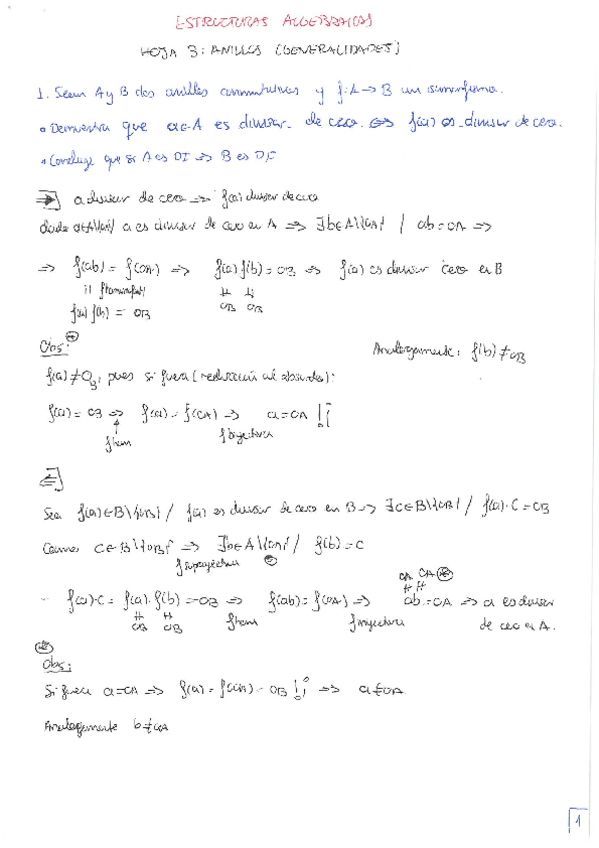 ESTRUCTURAS ALGEBRAICAS
HOJA 3: ANILLOS (GENERALIDADES)
1. Sean A y B dos anillos conmutativos y f: A → B un isomorfismo.
• Demuestra que a∈A es divisor de cero ⟺ f(a) es divisor de cero.
• Concluye que si A es DI ⟹ B es DI
⇒ a divisor de cero ⟹ f(a) divisor de cero
dado a∈A\{0A} a es divisor de cero en A ⟹ ∃b∈A\{0A} / ab = 0A ⟹
⟹ f(ab) = f(0A) ⟹ f(a) f(b) = 0B ⟹ f(a) es divisor cero en B
f(a) f(b) = 0B
Obs:
Analogamente: f(b) ≠ 0B
f(a) ≠ 0B, pues si fuera (reducción al absurdo):
f(a) = 0B ⟹ f(a) = f(0A) ⟹ a = 0A !¡
f hom f inyectiva
⇐
Sea f(a)∈B\{0B} / f(a) es divisor de cero en B ⟹ ∃c∈B\{0B} / f(a)·c = 0B
Como c∈B\{0B} ⟹ ∃b∈A\{0A} / f(b) = c
f suprayectiva
f(a)·c = f(a)·f(b) = 0B ⟹ f(ab) = f(0A) ⟹ ab = 0A ⟹ a es divisor
f hom f inyectiva de cero en A.
Obs:
Si fuera a = 0A ⟹ f(a) = f(0A) = 0B !¡ ⟹ a ≠ 0A
Analogamente b ≠ 0A
1